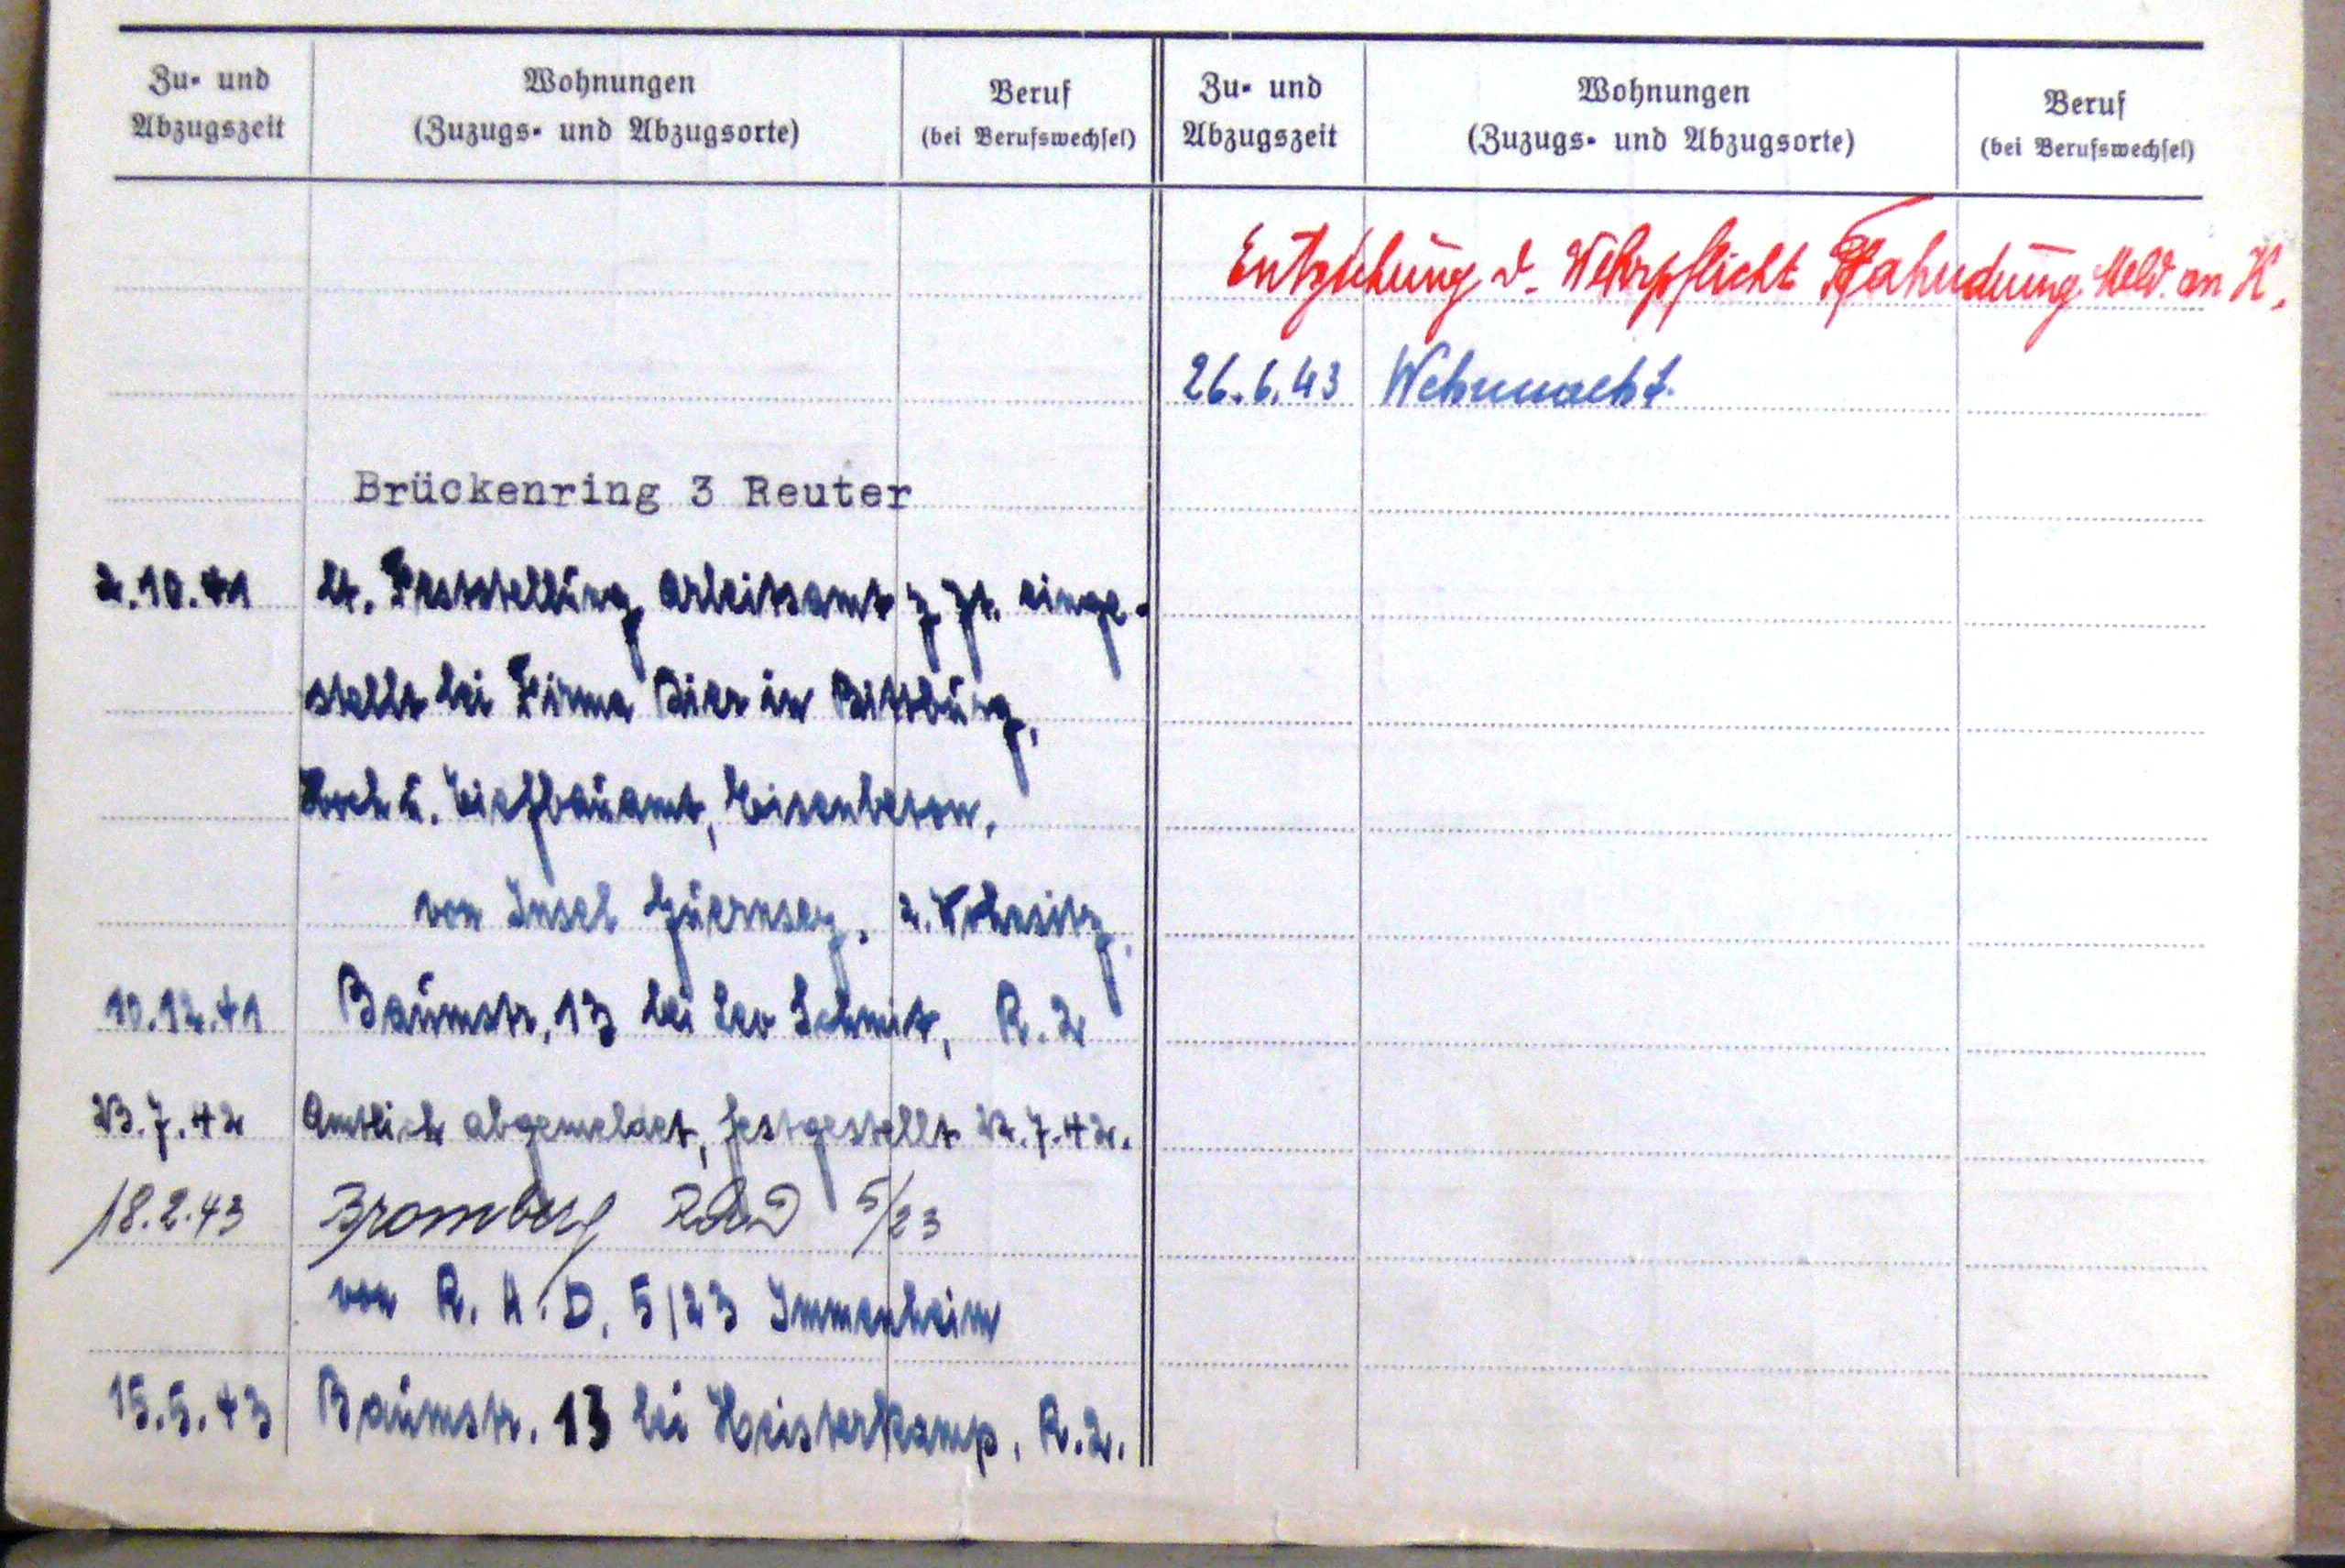 Zu- und Abzugszeit
Wohnungen (Zuzugs- und Abzugsorte)
Beruf (bei Berufswechsel)
Zu- und Abzugszeit
Wohnungen (Zuzugs- und Abzugsorte)
Beruf (bei Berufswechsel)
Brückenring 3 Reuter
2.10.41 lt. Feststellung Arbeitsamt z. Zt. einge-
stellt bei Firma in Bittburg,
Hoch u. Tiefbauamt, Eisenbeton.
von Insel Guernsey. 2. Wohnsitz
10.12.41 Baumstr. 13 bei Leo Schmit, R.2
23.7.42 Amtlich abgemeldet, festgestellt 22.7.42.
18.2.43 Bromberg RAD 5/23
von R.A.D. 5/23 Immenheim
15.5.43 Baumstr. 13 bei Heisterkamp. R.2.
Entziehung d. Wehrpflicht Fahndung. Meld. an K.
26.6.43 Wehrmacht.